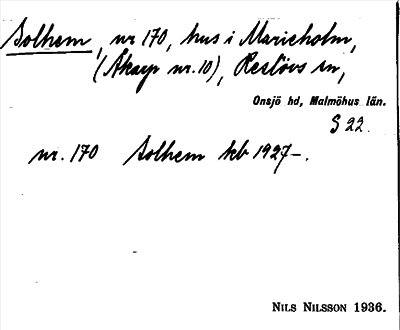 Solhem, nr 170, hus i Marieholm,
(Åkarp nr. 10), Reslövs sn,
Onsjö hd, Malmöhus län.
S 22.
nr. 170 Solhem kb 1927–.
NILS NILSSON 1936.